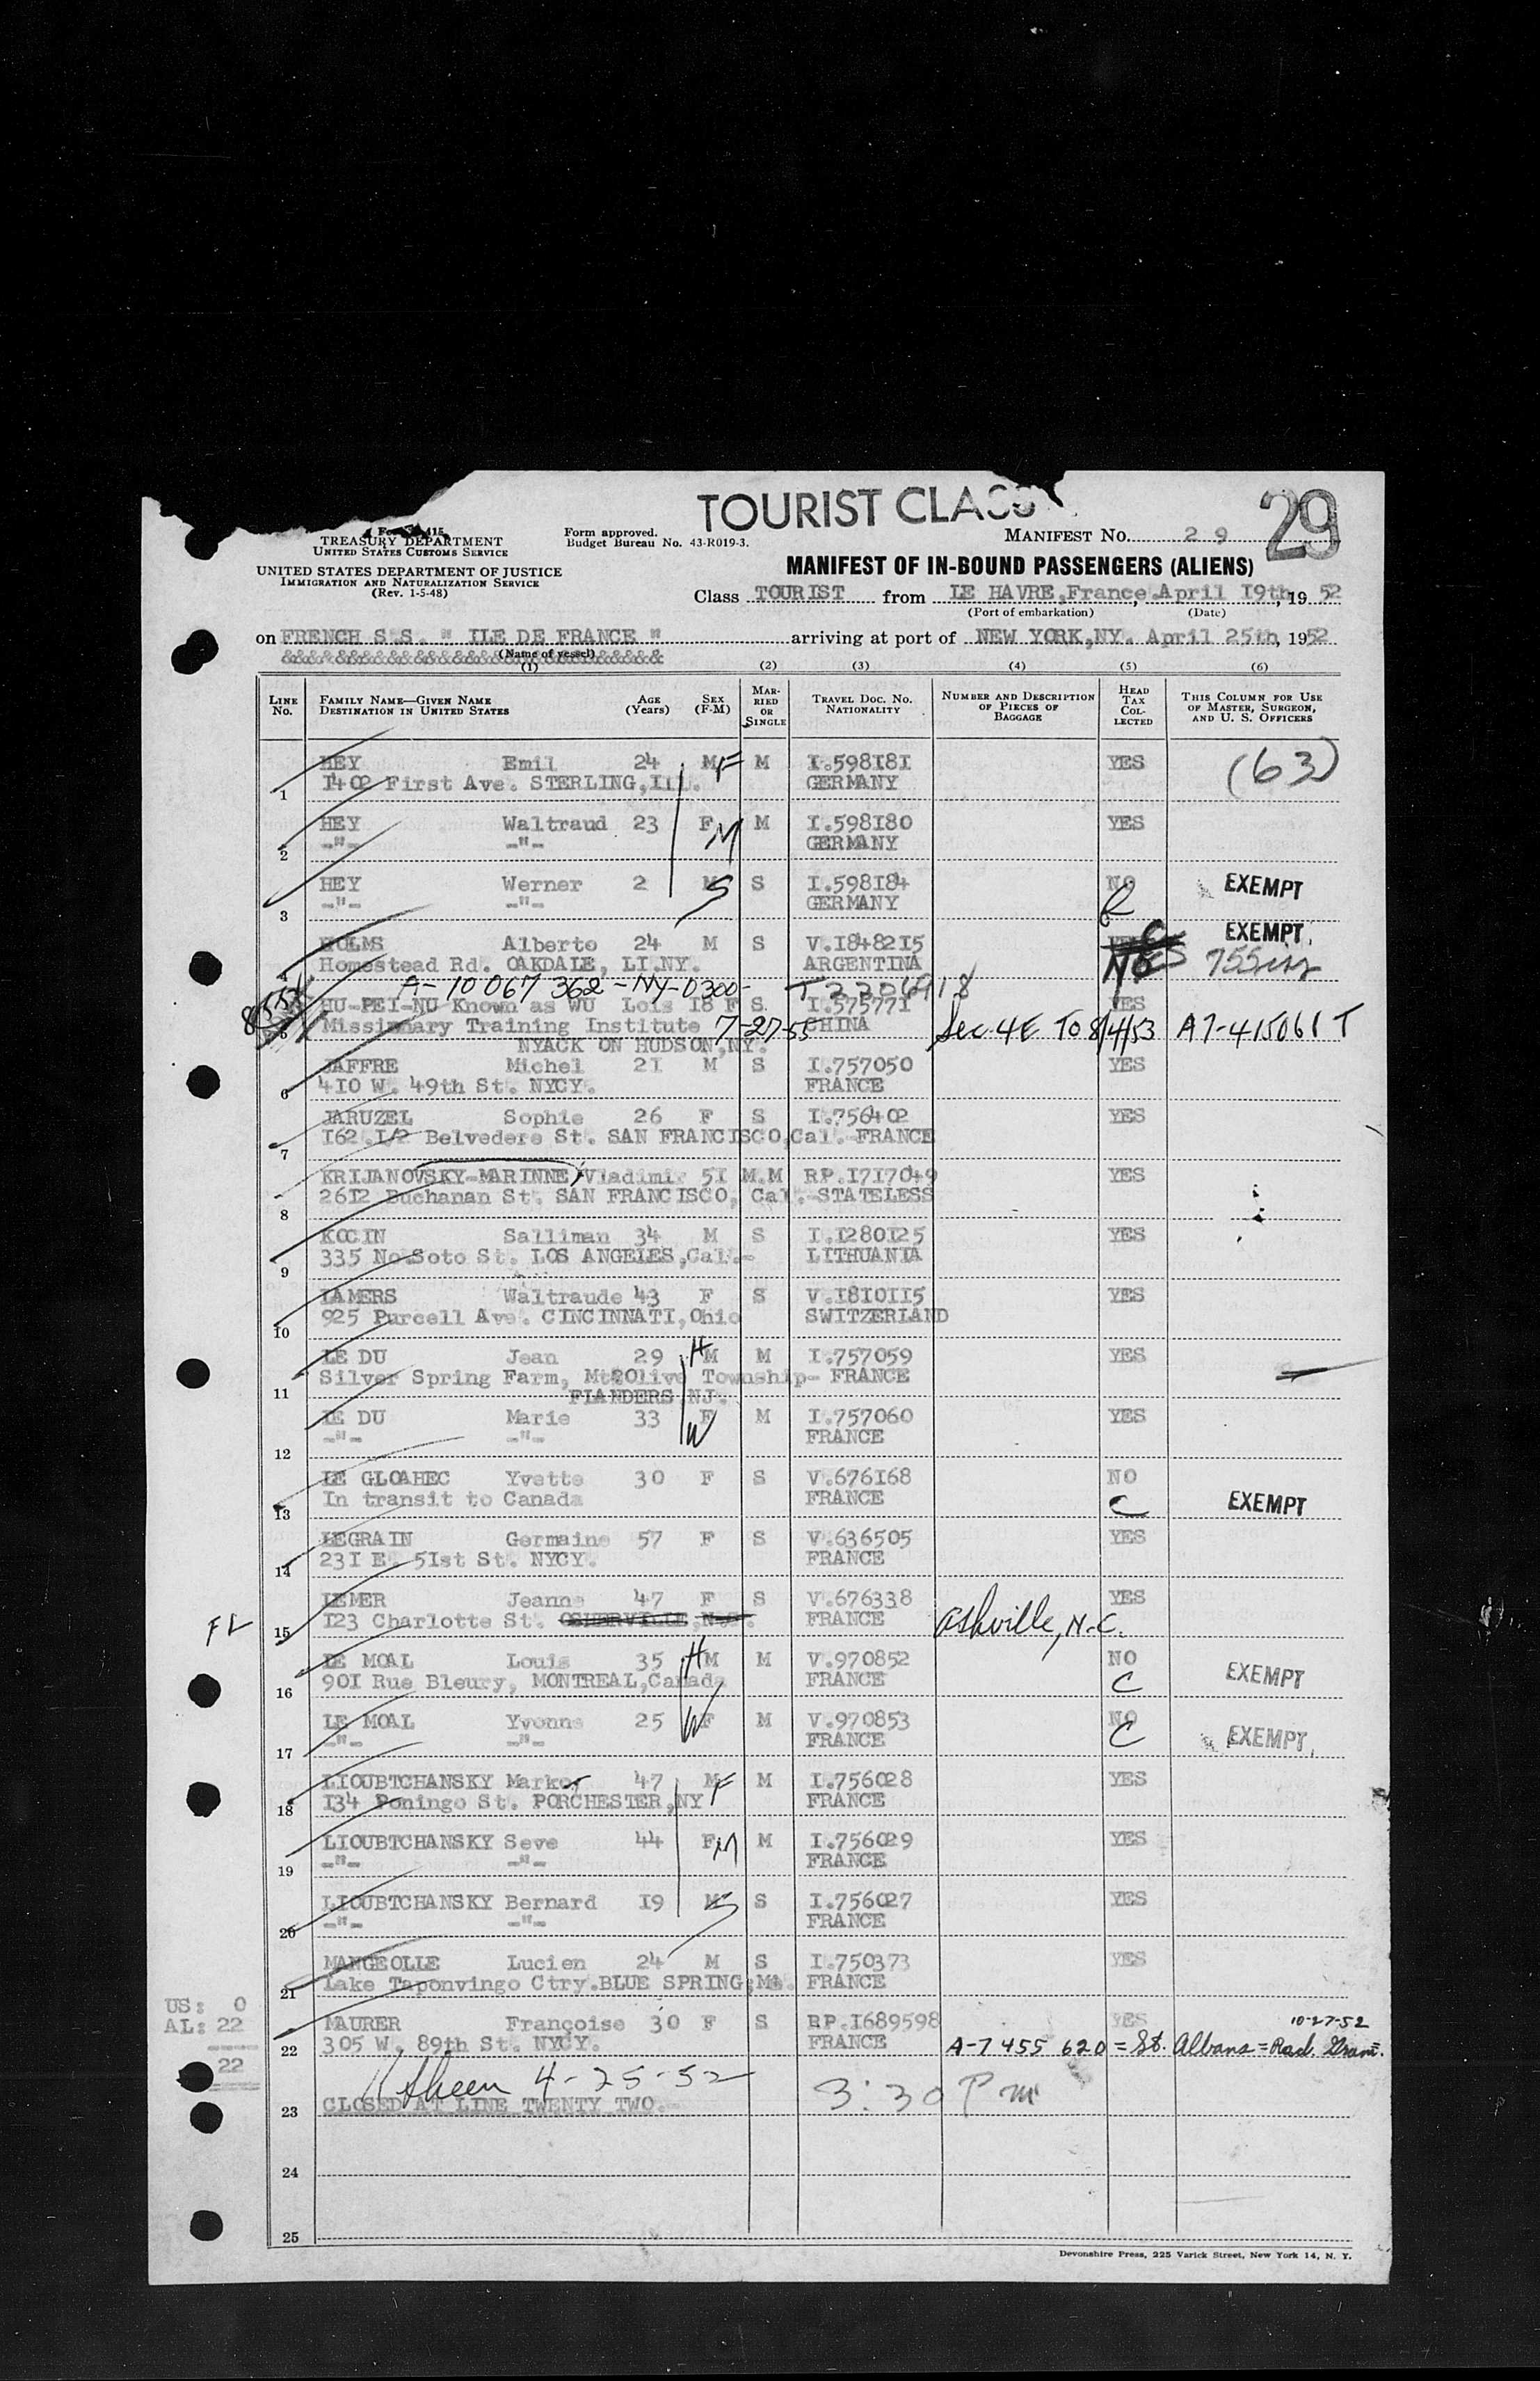 TOURIST CLASS
29
TREASURY DEPARTMENT
UNITED STATES CUSTOMS SERVICE
Form approved.
Budget Bureau No. 43-R019-3.
MANIFEST NO. 29
UNITED STATES DEPARTMENT OF JUSTICE
IMMIGRATION AND NATURALIZATION SERVICE
(Rev. 1-5-48)
MANIFEST OF IN-BOUND PASSENGERS (ALIENS)
Class TOURIST from LE HAVRE, France, April I9th, 19 52
(Port of embarkation) (Date)
on FRENCH S.S. " ILE DE FRANCE " arriving at port of NEW YORK, NY. April 25th, 1952
(Name of vessel)
(1) (2) (3) (4) (5) (6)
LINE NO. FAMILY NAME—GIVEN NAME DESTINATION IN UNITED STATES AGE (Years) SEX (F-M) MARRIED OR SINGLE TRAVEL DOC. NO. NATIONALITY NUMBER AND DESCRIPTION OF PIECES OF BAGGAGE HEAD TAX COLLECTED THIS COLUMN FOR USE OF MASTER, SURGEON, AND U. S. OFFICERS
HEY Emil 24 M F M I.598I8I YES (63)
1 I402 First Ave. STERLING, Ill. GERMANY
HEY Waltraud 23 F M M I.598I80 YES
2 -"- -"- GERMANY
HEY Werner 2 M S S I.598I84 NO EXEMPT
3 -"- -"- GERMANY
HOLMS Alberto 24 M S V.I8482I5 EXEMPT
4 Homestead Rd. OAKDALE, LI.NY. ARGENTINA NO
A-10 067 362 - NY-0300- T 2206918
HU-PEI-NU Known as WU Lois I8 F S I.57577I YES
5 Missionary Training Institute 7-27-55 CHINA Sec. 4E TO 8/4/53 A7-415061 T
NYACK ON HUDSON, NY.
JAFFRE Michel 2I M S I.757050 YES
6 4I0 W. 49th St. NYCY. FRANCE
JARUZEL Sophie 26 F S I.756402 YES
7 I62.I/2 Belvedere St. SAN FRANCISCO, Cal.-FRANCE
KRIJANOVSKY-MARINNE Vladimir 5I M.M RP.I7I7049 YES
8 26I2 Buchanan St. SAN FRANCISCO, Cal.-STATELESS
KOCIN Salliman 34 M S I.I280I25 YES
9 335 No.Soto St. LOS ANGELES, Cal.- LITHUANIA
LAMERS Waltraude 43 F S V.I8I0II5 YES
10 925 Purcell Ave. CINCINNATI, Ohio SWITZERLAND
LE DU Jean 29 H M M I.757059 YES
11 Silver Spring Farm, Mt Olive Township- FRANCE
FLANDERS NJ.
LE DU Marie 33 F W M I.757060 YES
12 -"- -"- FRANCE
LE GLOAHEC Yvette 30 F S V.676I68 NO
13 In transit to Canada FRANCE C EXEMPT
LEGRAIN Germaine 57 F S V.636505 YES
14 23I E. 5Ist St. NYCY. FRANCE
LEMER Jeanne 47 F S V.676338 YES
FL 15 I23 Charlotte St. OSHERVILLE, N.C. FRANCE Ashville, N.C.
LE MOAL Louis 35 H M M V.970852 NO
16 90I Rue Bleury, MONTREAL, Canada FRANCE C EXEMPT
LE MOAL Yvonne 25 W F M V.970853 NO
17 -"- -"- FRANCE C EXEMPT
LIOUBTCHANSKY Markos 47 M F M I.756028 YES
18 I34 Poningo St. PORCHESTER, NY FRANCE
LIOUBTCHANSKY Seve 44 F M M I.756029 YES
19 -"- -"- FRANCE
LIOUBTCHANSKY Bernard I9 M S S I.756027 YES
20 -"- -"- FRANCE
MANGEOLLE Lucien 24 M S I.750373 YES
21 Lake Taponvingo Ctry.BLUE SPRING, Mt. FRANCE
US: 0
AL: 22
22
MAURER Françoise 30 F S RP.I689598 YES 10-27-52
22 305 W. 89th St. NYCY. FRANCE A-7 455 620 = St. Albans = Rad. Gram.
4-25-52 3:30 Pm
23 CLOSED AT LINE TWENTY TWO.-
24
25
Devonshire Press, 225 Varick Street, New York 14, N. Y.